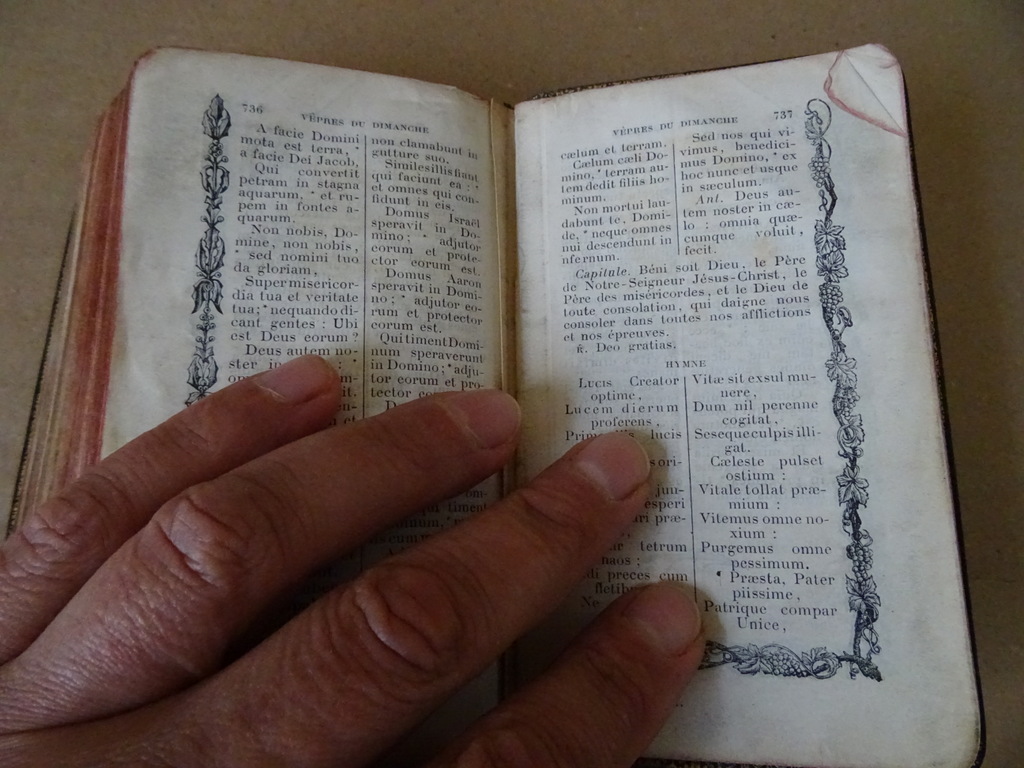 736
VÊPRES DU DIMANCHE
A facie Domini
mota est terra, *
a facie Dei Jacob.
Qui convertit
petram in stagna
aquarum, * et ru-
pem in fontes a-
quarum.
Non nobis, Do-
mine, non nobis,
* sed nomini tuo
da gloriam,
Super misericor-
dia tua et veritate
tua; * nequando di-
cant gentes : Ubi
est Deus eorum ?
Deus autem no-
ster in
non clamabunt in
gutture suo.
Similes illis fiant
qui faciunt ea : *
et omnes qui con-
fidunt in eis.
Domus Israël
speravit in Do-
mino; * adjutor
eorum et prote-
ctor eorum est.
Domus Aaron
speravit in Domi-
no; * adjutor eo-
rum et protector
eorum est.
Qui timent Domi-
num speraverunt
in Domino; * adju-
tor eorum et pro-
tector
qui timent
737
VÊPRES DU DIMANCHE
cælum et terram.
Cælum cæli Do-
mino, * terram au-
tem dedit filiis ho-
minum.
Non mortui lau-
dabunt te, Domi-
de, * neque omnes
nui descendunt in
nfernum.
Sed nos qui vi-
vimus, benedici-
mus Domino, * ex
hoc nunc et usque
in sæculum.
Ant. Deus au-
tem noster in cæ-
lo : omnia quæ-
cumque voluit,
fecit.
Capitule. Béni soit Dieu, le Père
de Notre-Seigneur Jésus-Christ, le
Père des miséricordes, et le Dieu de
toute consolation, qui daigne nous
consoler dans toutes nos afflictions
et nos épreuves.
℟. Deo gratias.
HYMNE
Lucis Creator
optime,
Lucem dierum
proferens,
lucis
tetrum
preces cum
Ne
Vitæ sit exsul mu-
nere,
Dum nil perenne
cogitat,
Seseque culpis illi-
gat.
Cæleste pulset
ostium :
Vitale tollat præ-
mium :
Vitemus omne no-
xium :
Purgemus omne
pessimum.
* Præsta, Pater
piissime,
Patrique compar
Unice,